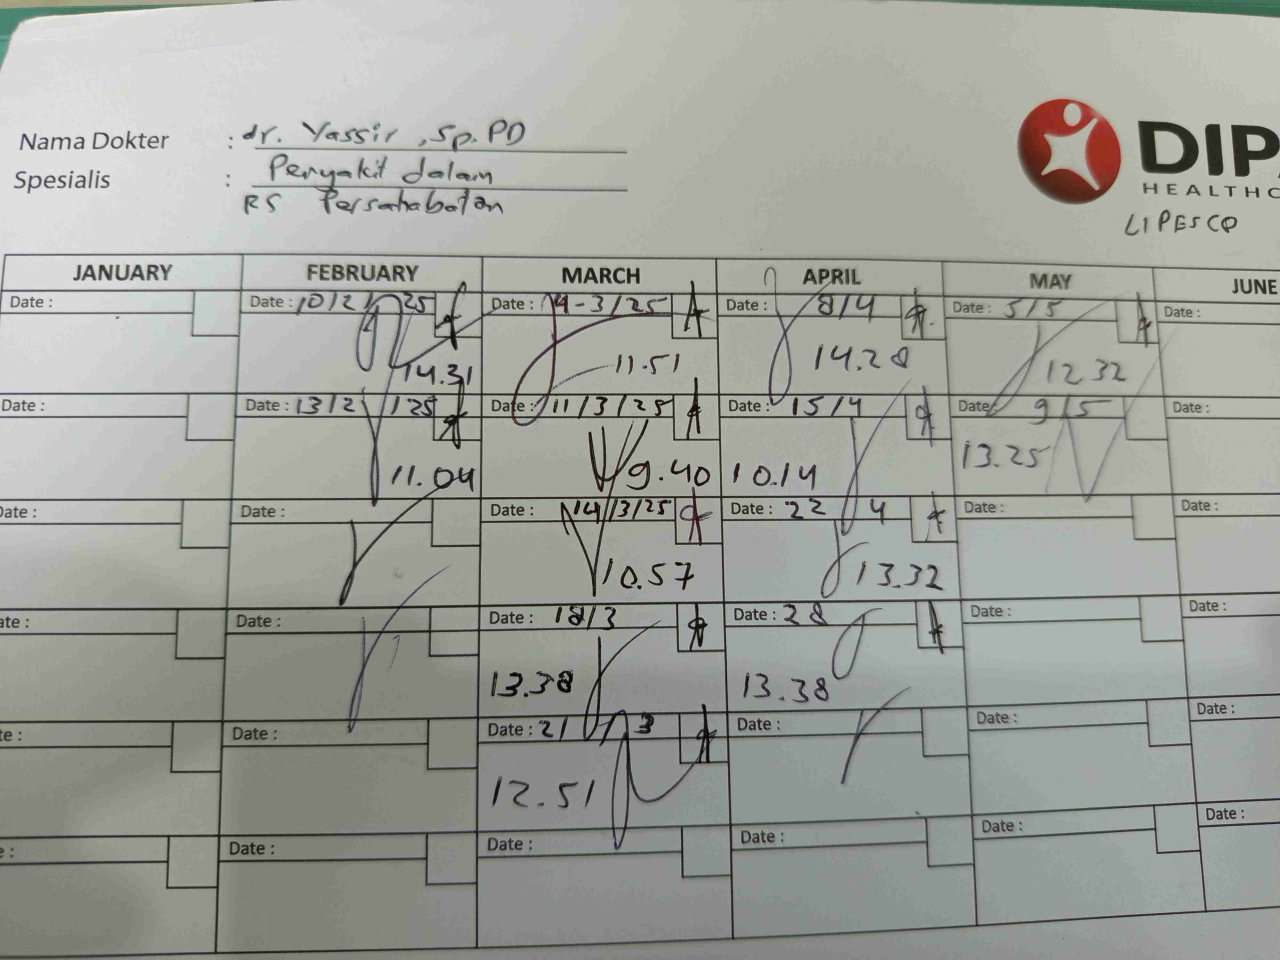 Nama Dokter : dr. Yassir, Sp.PD
Spesialis : Penyakit dalam
RS Persahabatan
DIPA
HEALTHC
LIPESCO
JANUARY FEBRUARY MARCH APRIL MAY JUNE
Date : Date : 10/2/25 Date : 4-3/25 Date : 8/4 Date : 5/5 Date :
14.31 11.51 14.28 12.32
Date : Date : 13/2/25 Date : 11/3/25 Date : 15/4 Date : 9/5 Date :
11.04 9.40 10.14 13.25
Date : Date : Date : 14/3/25 Date : 22 4 Date : Date :
10.57 13.32
ate : Date : Date : 18/3 Date : 28 Date : Date :
13.38 13.38
te : Date : Date : 21/3 Date : Date : Date :
12.51
e : Date : Date : Date : Date : Date :